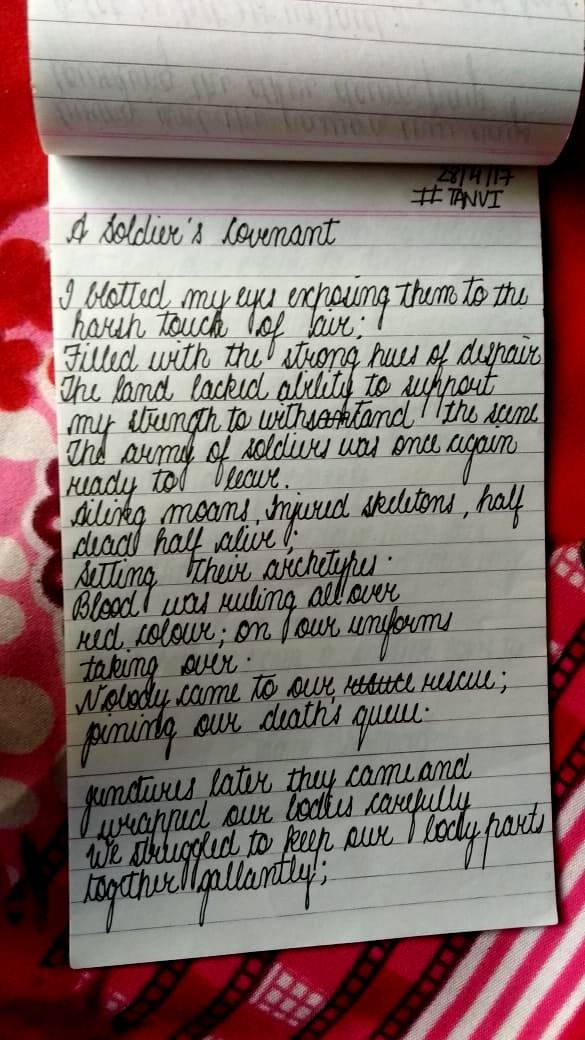 28/4/17
# TANVI
A Soldier's Covenant
I blotted my eyes exposing them to the
harsh touch of air;
Filled with the strong hues of despair
The land lacked ability to support
my strength to withstand the scene
The army of soldiers was once again
ready to leave.
Ailing moans, Injured skeletons, half
dead half alive;
Setting their archetypes.
Blood was ruling all over
red colour; on our uniforms
taking over.
Nobody came to our rescue;
joining our death's queue.
junctures later they came and
wrapped our bodies carefully
We struggled to keep our body parts
together gallantly;